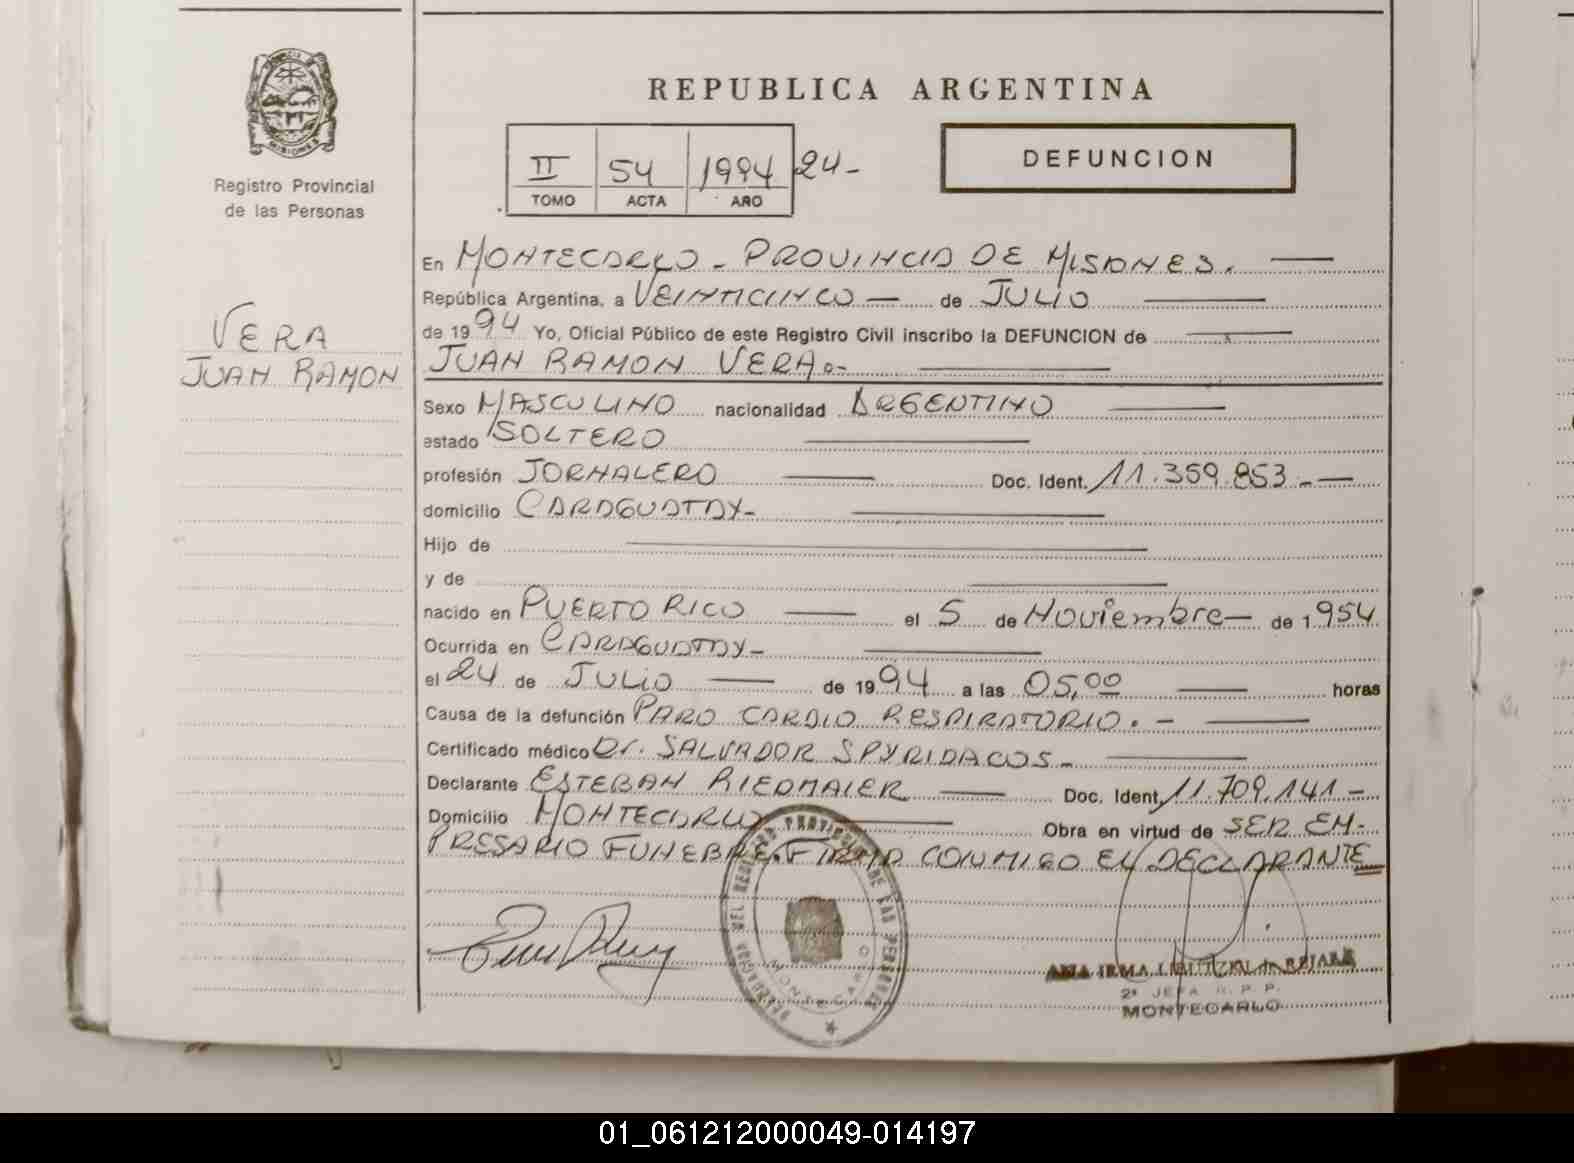 PROVINCIA DE
MISIONES
Registro Provincial
de las Personas
VERA
JUAN RAMON
REPUBLICA ARGENTINA
II 54 1994 24-
TOMO ACTA AÑO
DEFUNCION
En MONTECARLO - PROVINCIA DE MISIONES.
República Argentina, a VEINTICINCO — de JULIO
de 1994 Yo, Oficial Público de este Registro Civil inscribo la DEFUNCION de
JUAN RAMON VERA.-
Sexo MASCULINO nacionalidad ARGENTINO
estado SOLTERO
profesión JORNALERO Doc. Ident. 11.359.853.-
domicilio CARAGUATAY-
Hijo de
y de
nacido en PUERTO RICO el 5 de Noviembre- de 1954
Ocurrida en CARAGUATAY-
el 24 de JULIO de 1994 a las 05,00 horas
Causa de la defunción PARO CARDIO RESPIRATORIO.-
Certificado médico Dr. SALVADOR SPYRIDACOS-
Declarante ESTEBAN RIEDMAIER Doc. Ident. 11.709.141-
Domicilio MONTECARLO Obra en virtud de SER EM-
PRESARIO FUNEBRE. FIRMA CONMIGO EL DECLARANTE
DELEGACION DEL REGISTRO PROVINCIAL DE LAS PERSONAS
MONTECARLO
ANA IRMA de BEJAR
2ª JEFA R. P. P.
MONTECARLO
01_061212000049-014197